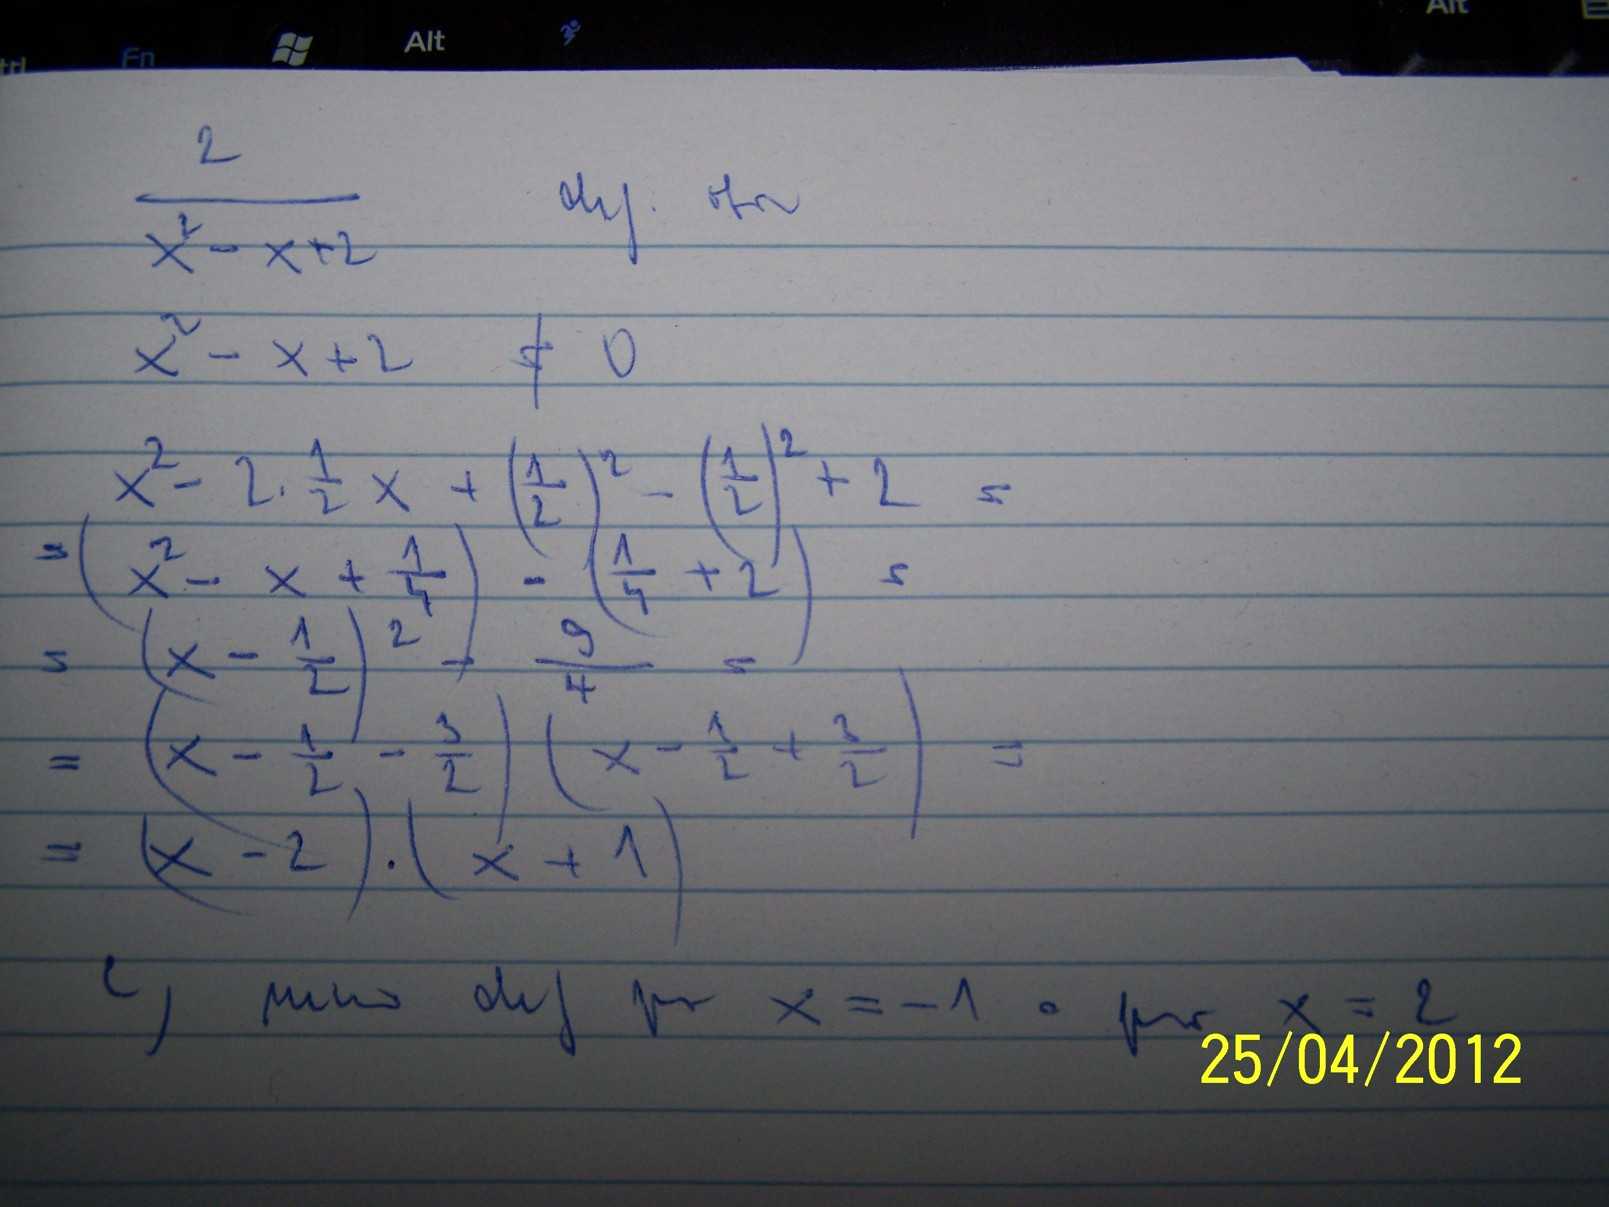 Fn Alt Alt
2
x² - x + 2
def.
x² - x + 2 ≠ 0
x² - 2 · 1/2 x + (1/2)² - (1/2)² + 2 =
= (x² - x + 1/4) - (1/4 + 2) =
= (x - 1/2)² - 9/4 =
= (x - 1/2 - 3/2) (x - 1/2 + 3/2) =
= (x - 2) · (x + 1)
def x = -1 x = 2
25/04/2012